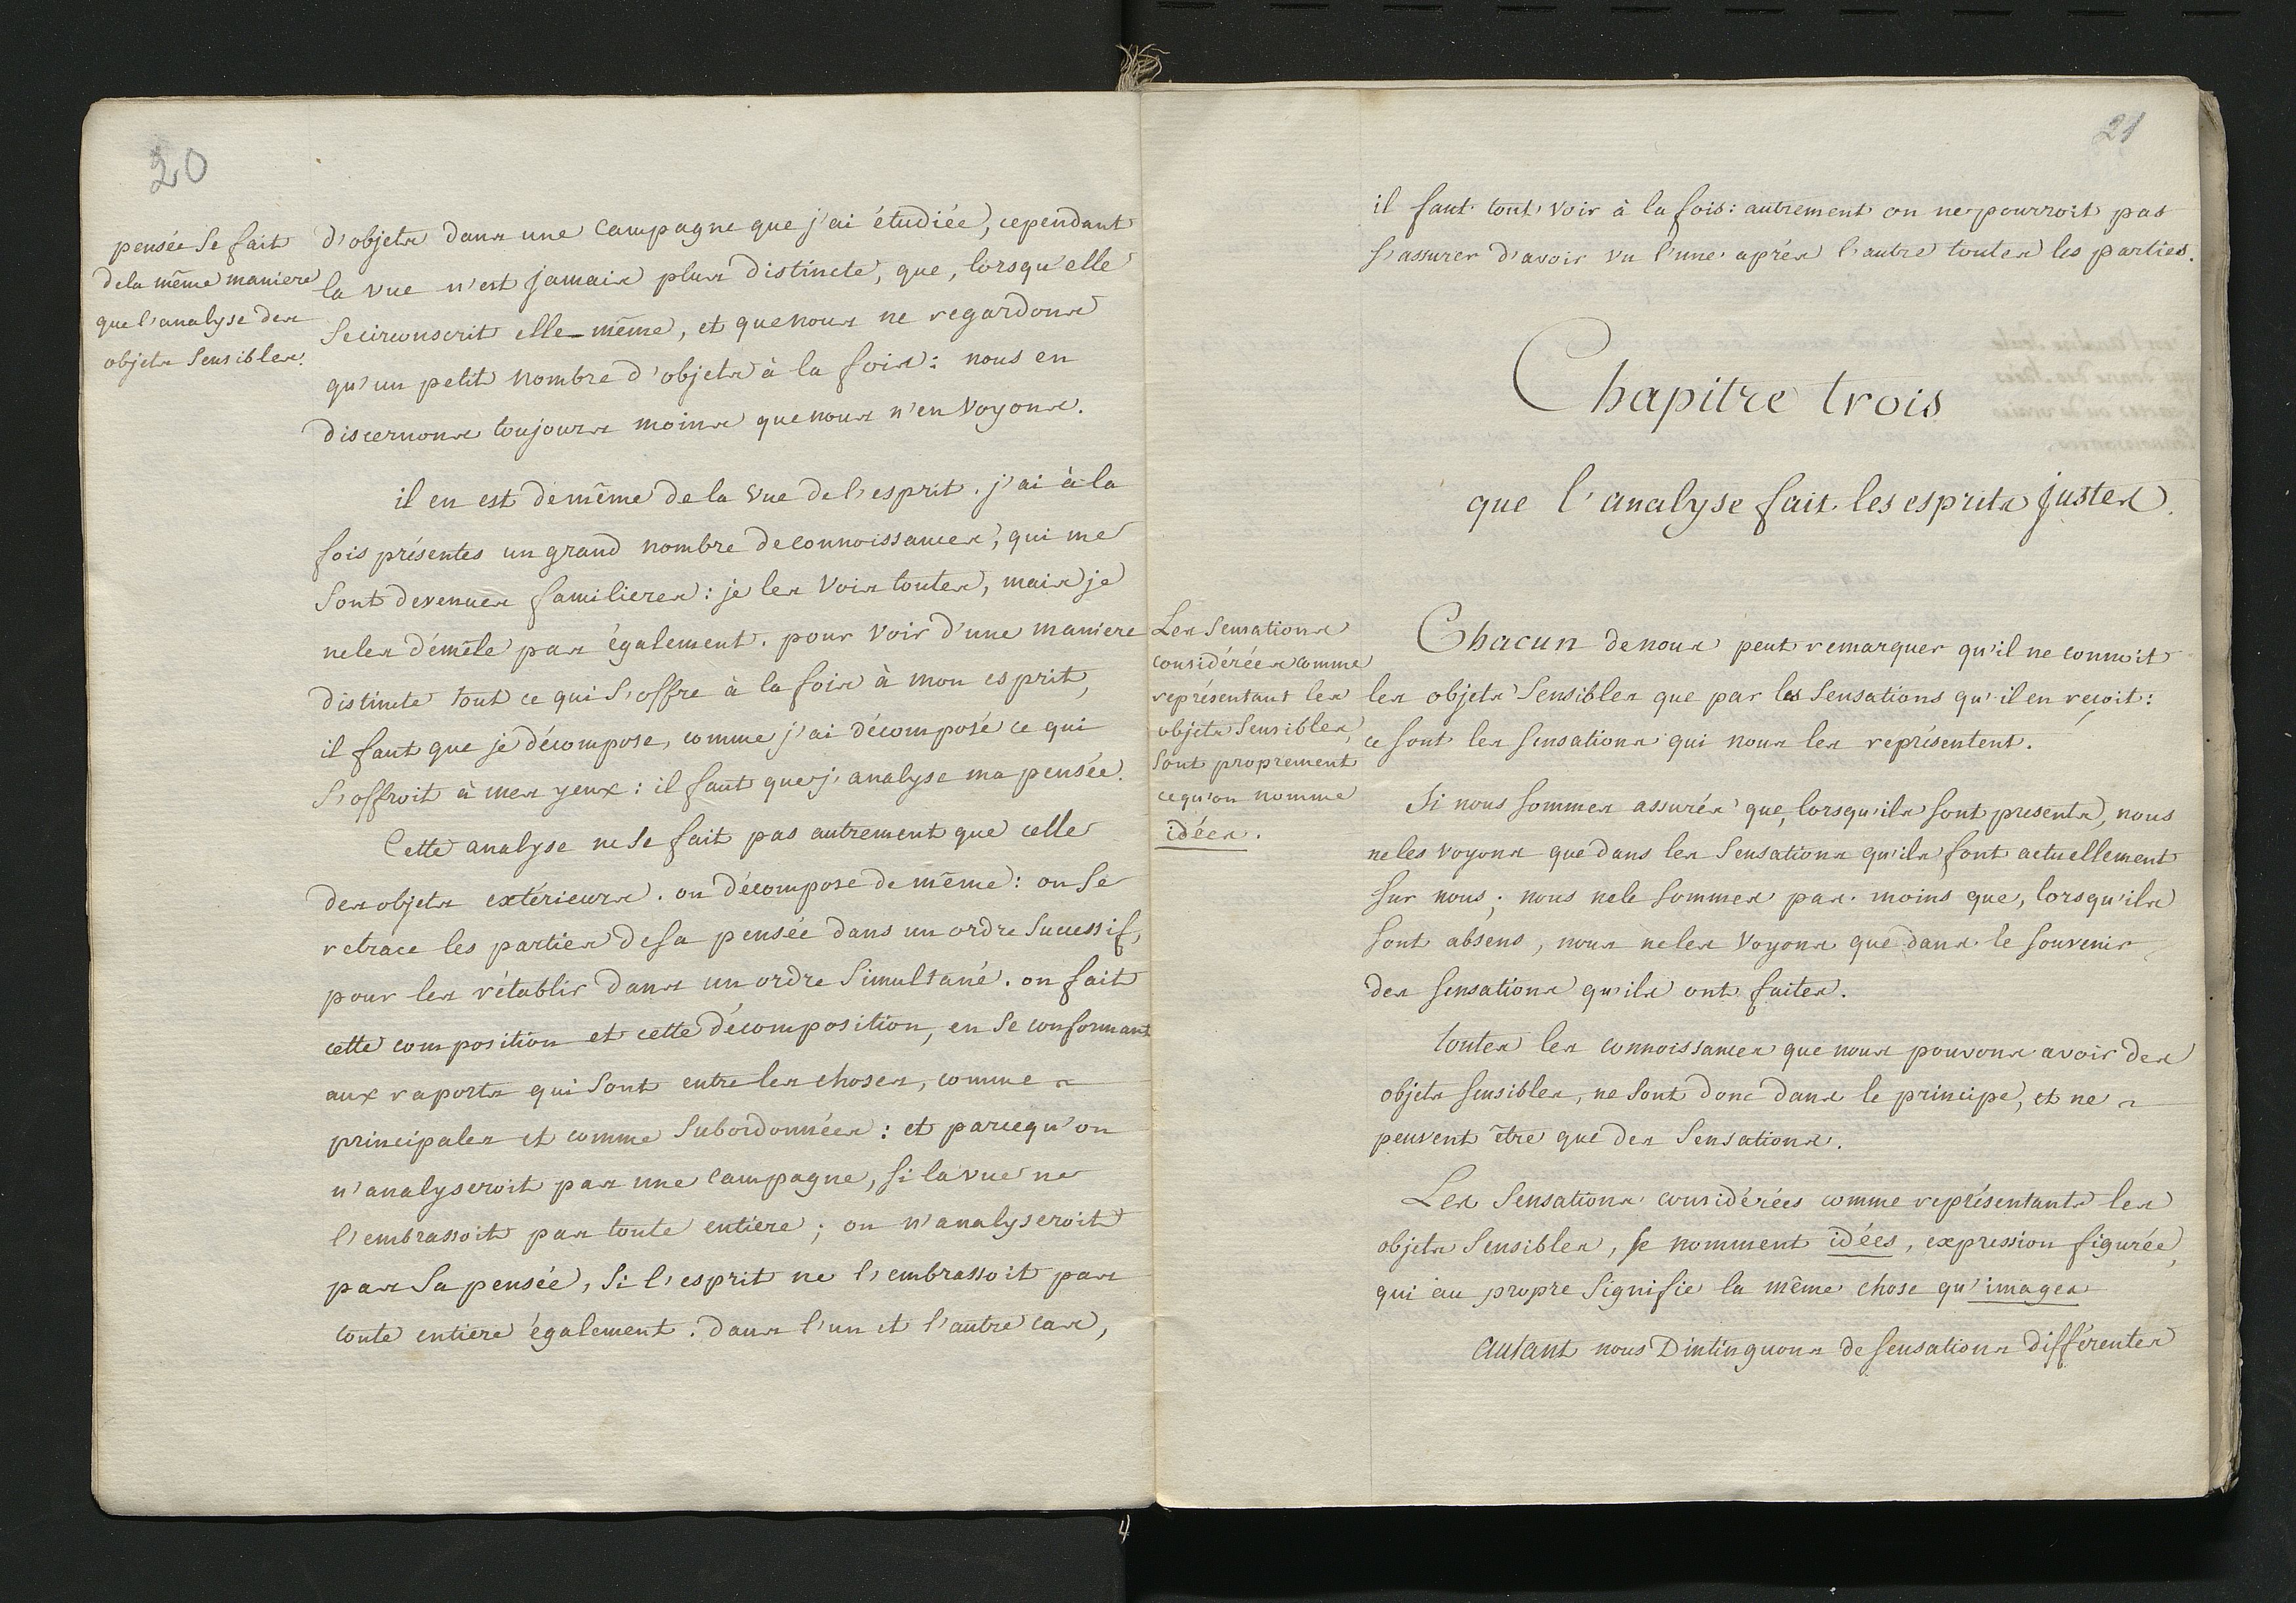 20
pensée se fait
de la même maniere
que l'analyse des
objets sensibles.
d'objets dans une campagne que j'ai étudiée, cependant
la vue n'est jamais plus distincte, que, lorsqu'elle
se circonscrit elle-même, et que nous ne regardons
qu'un petit nombre d'objets à la fois: nous en
discernons toujours moins que nous n'en voyons.
il en est de même de la vue de l'esprit. j'ai à la
fois présentes un grand nombre de connoissances, qui me
sont devenues familieres: je les vois toutes, mais je
ne les démêle pas également. pour voir d'une maniere
distincte tout ce qui s'offre à la fois à mon esprit,
il faut que je décompose, comme j'ai décomposé ce qui
s'offroit à mes yeux: il faut que j'analyse ma pensée.
Cette analyse ne se fait pas autrement que celle
des objets extérieurs. on décompose de même: on se
retrace les parties de sa pensée dans un ordre successif,
pour les rétablir dans un ordre simultané. on fait
cette composition et cette décomposition, en se conformant
aux raports qui sont entre les choses, comme
principales et comme subordonnées: et parcequ'on
n'analyseroit pas une campagne, si la vue ne
l'embrassoit pas toute entiere; on n'analyseroit
pas sa pensée, si l'esprit ne l'embrassoit pas
toute entiere également. dans l'un et l'autre cas,
21
il faut tout voir à la fois: autrement on ne pourroit pas
s'assurer d'avoir vu l'une après l'autre toutes les parties.
Chapitre trois
que l'analyse fait les esprits justes.
Les sensations
considérées comme
représentant les
objets sensibles,
sont proprement
ce qu'on nomme
idées.
Chacun de nous peut remarquer qu'il ne connoit
les objets sensibles que par les sensations qu'il en reçoit:
ce sont les sensations qui nous les représentent.
Si nous sommes assurés que, lorsqu'ils sont presents, nous
ne les voyons que dans les sensations qu'ils font actuellement
sur nous; nous ne le sommes pas moins que, lorsqu'ils
sont absens, nous ne les voyons que dans le souvenir
des sensations qu'ils ont faites.
toutes les connoissances que nous pouvons avoir des
objets sensibles, ne sont donc dans le principe, et ne
peuvent être que des sensations.
Les sensations considérées comme représentants les
objets sensibles, se nomment idées, expression figurée,
qui au propre signifie la même chose qu'images
autant nous Dintinguons de sensations différentes
4